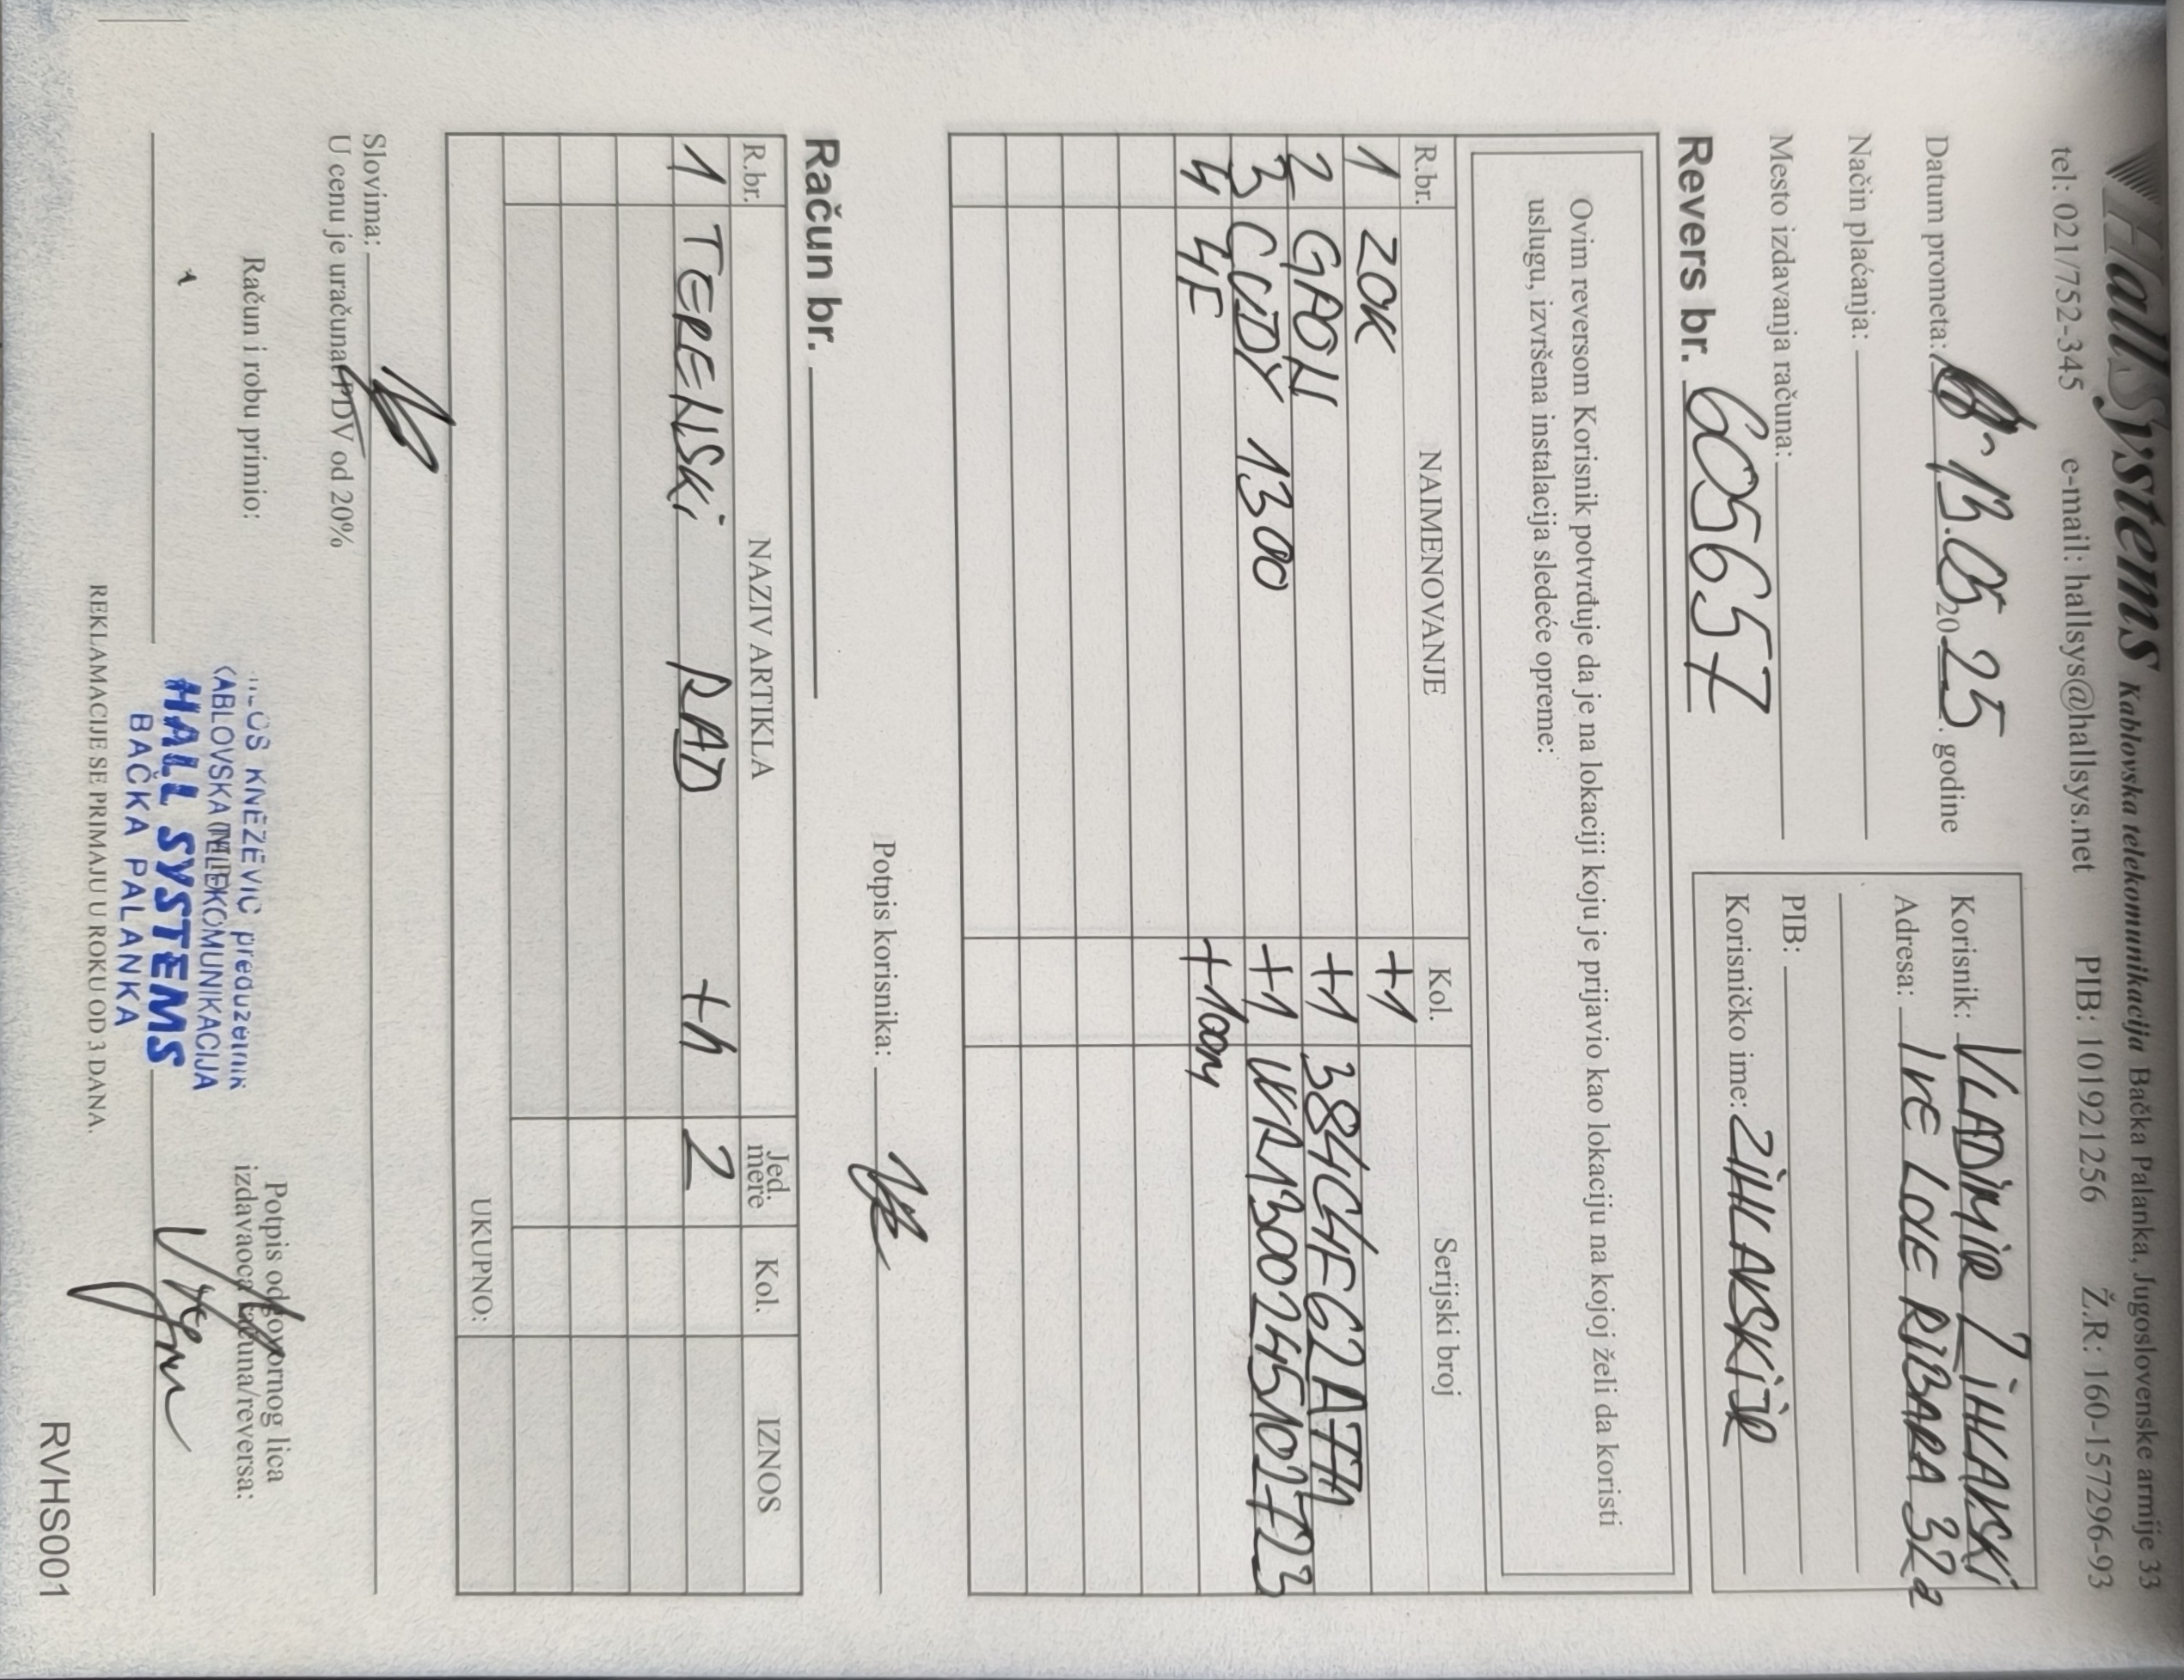 HallSystems Kablovska telekomunikacija Bačka Palanka, Jugoslovenske armije 33
tel: 021/752-345 e-mail: hallsys@hallsys.net PIB: 101921256 Ž.R.: 160-157296-93
Datum prometa: 13.05.2025. godine
Način plaćanja:
Mesto izdavanja računa:
Korisnik: VLADIMIR ŽIHLAVSKI
Adresa: IVE LOLE RIBARA 32a
PIB:
Korisničko ime: ZIHLAVSKIJR
Revers br. 605657
Ovim reversom Korisnik potvrđuje da je na lokaciji koju je prijavio kao lokaciju na kojoj želi da koristi
uslugu, izvršena instalacija sledeće opreme:
R.br. NAIMENOVANJE Kol. Serijski broj
1 ZOK +1
2 GPON +1 384C4F62A77A
3 CUDY 1300 +1 WR1300245102723
4 4F +100m
Potpis korisnika:
Račun br.
R.br. NAZIV ARTIKLA Jed. mere Kol. IZNOS
1 TERENSKI RAD +h 2
UKUPNO:
Slovima:
U cenu je uračunat PDV od 20%
Račun i robu primio:
Potpis odgovornog lica
izdavaoca računa/reversa:
KNEŽEVIĆ preduzetnik
KABLOVSKA TELEKOMUNIKACIJA
HALL SYSTEMS
BAČKA PALANKA
REKLAMACIJE SE PRIMAJU U ROKU OD 3 DANA.
RVHS001